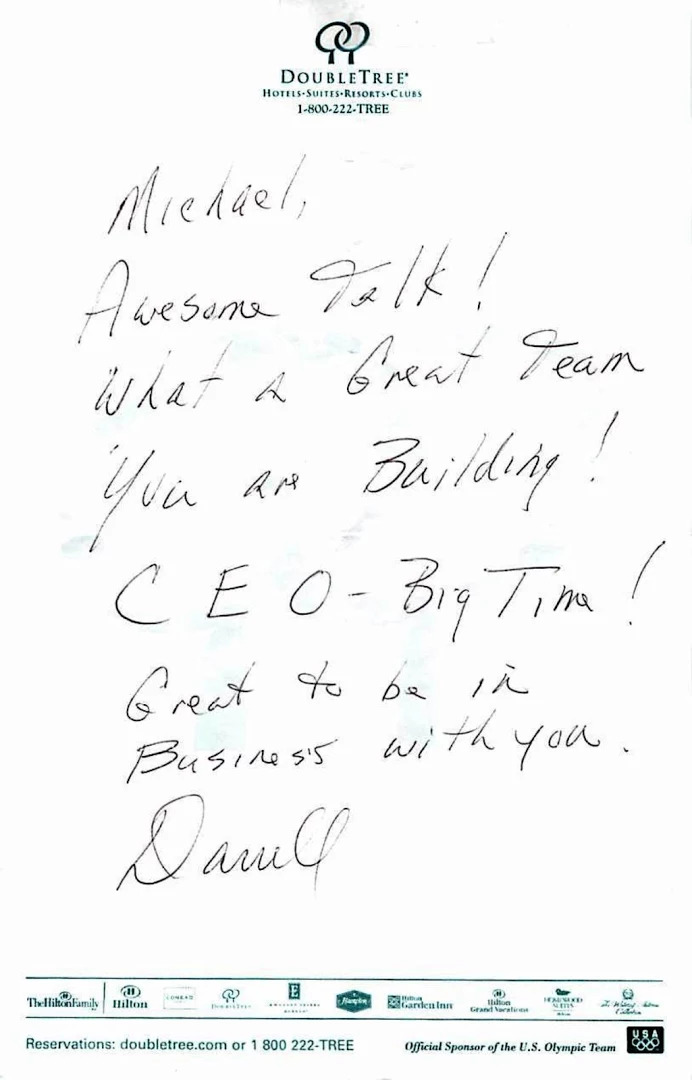 DOUBLETREE®
HOTELS·SUITES·RESORTS·CLUBS
1-800-222-TREE
Michael,
Awesome Talk!
What a Great Team
You are Building!
CEO - Big Time!
Great to be in
Business with you.
Darrell
The Hilton Family Hilton CONRAD DOUBLETREE EMBASSY SUITES HOTELS Hampton Hilton Garden Inn Hilton Grand Vacations HOMEWOOD SUITES Hilton
Reservations: doubletree.com or 1 800 222-TREE Official Sponsor of the U.S. Olympic Team USA